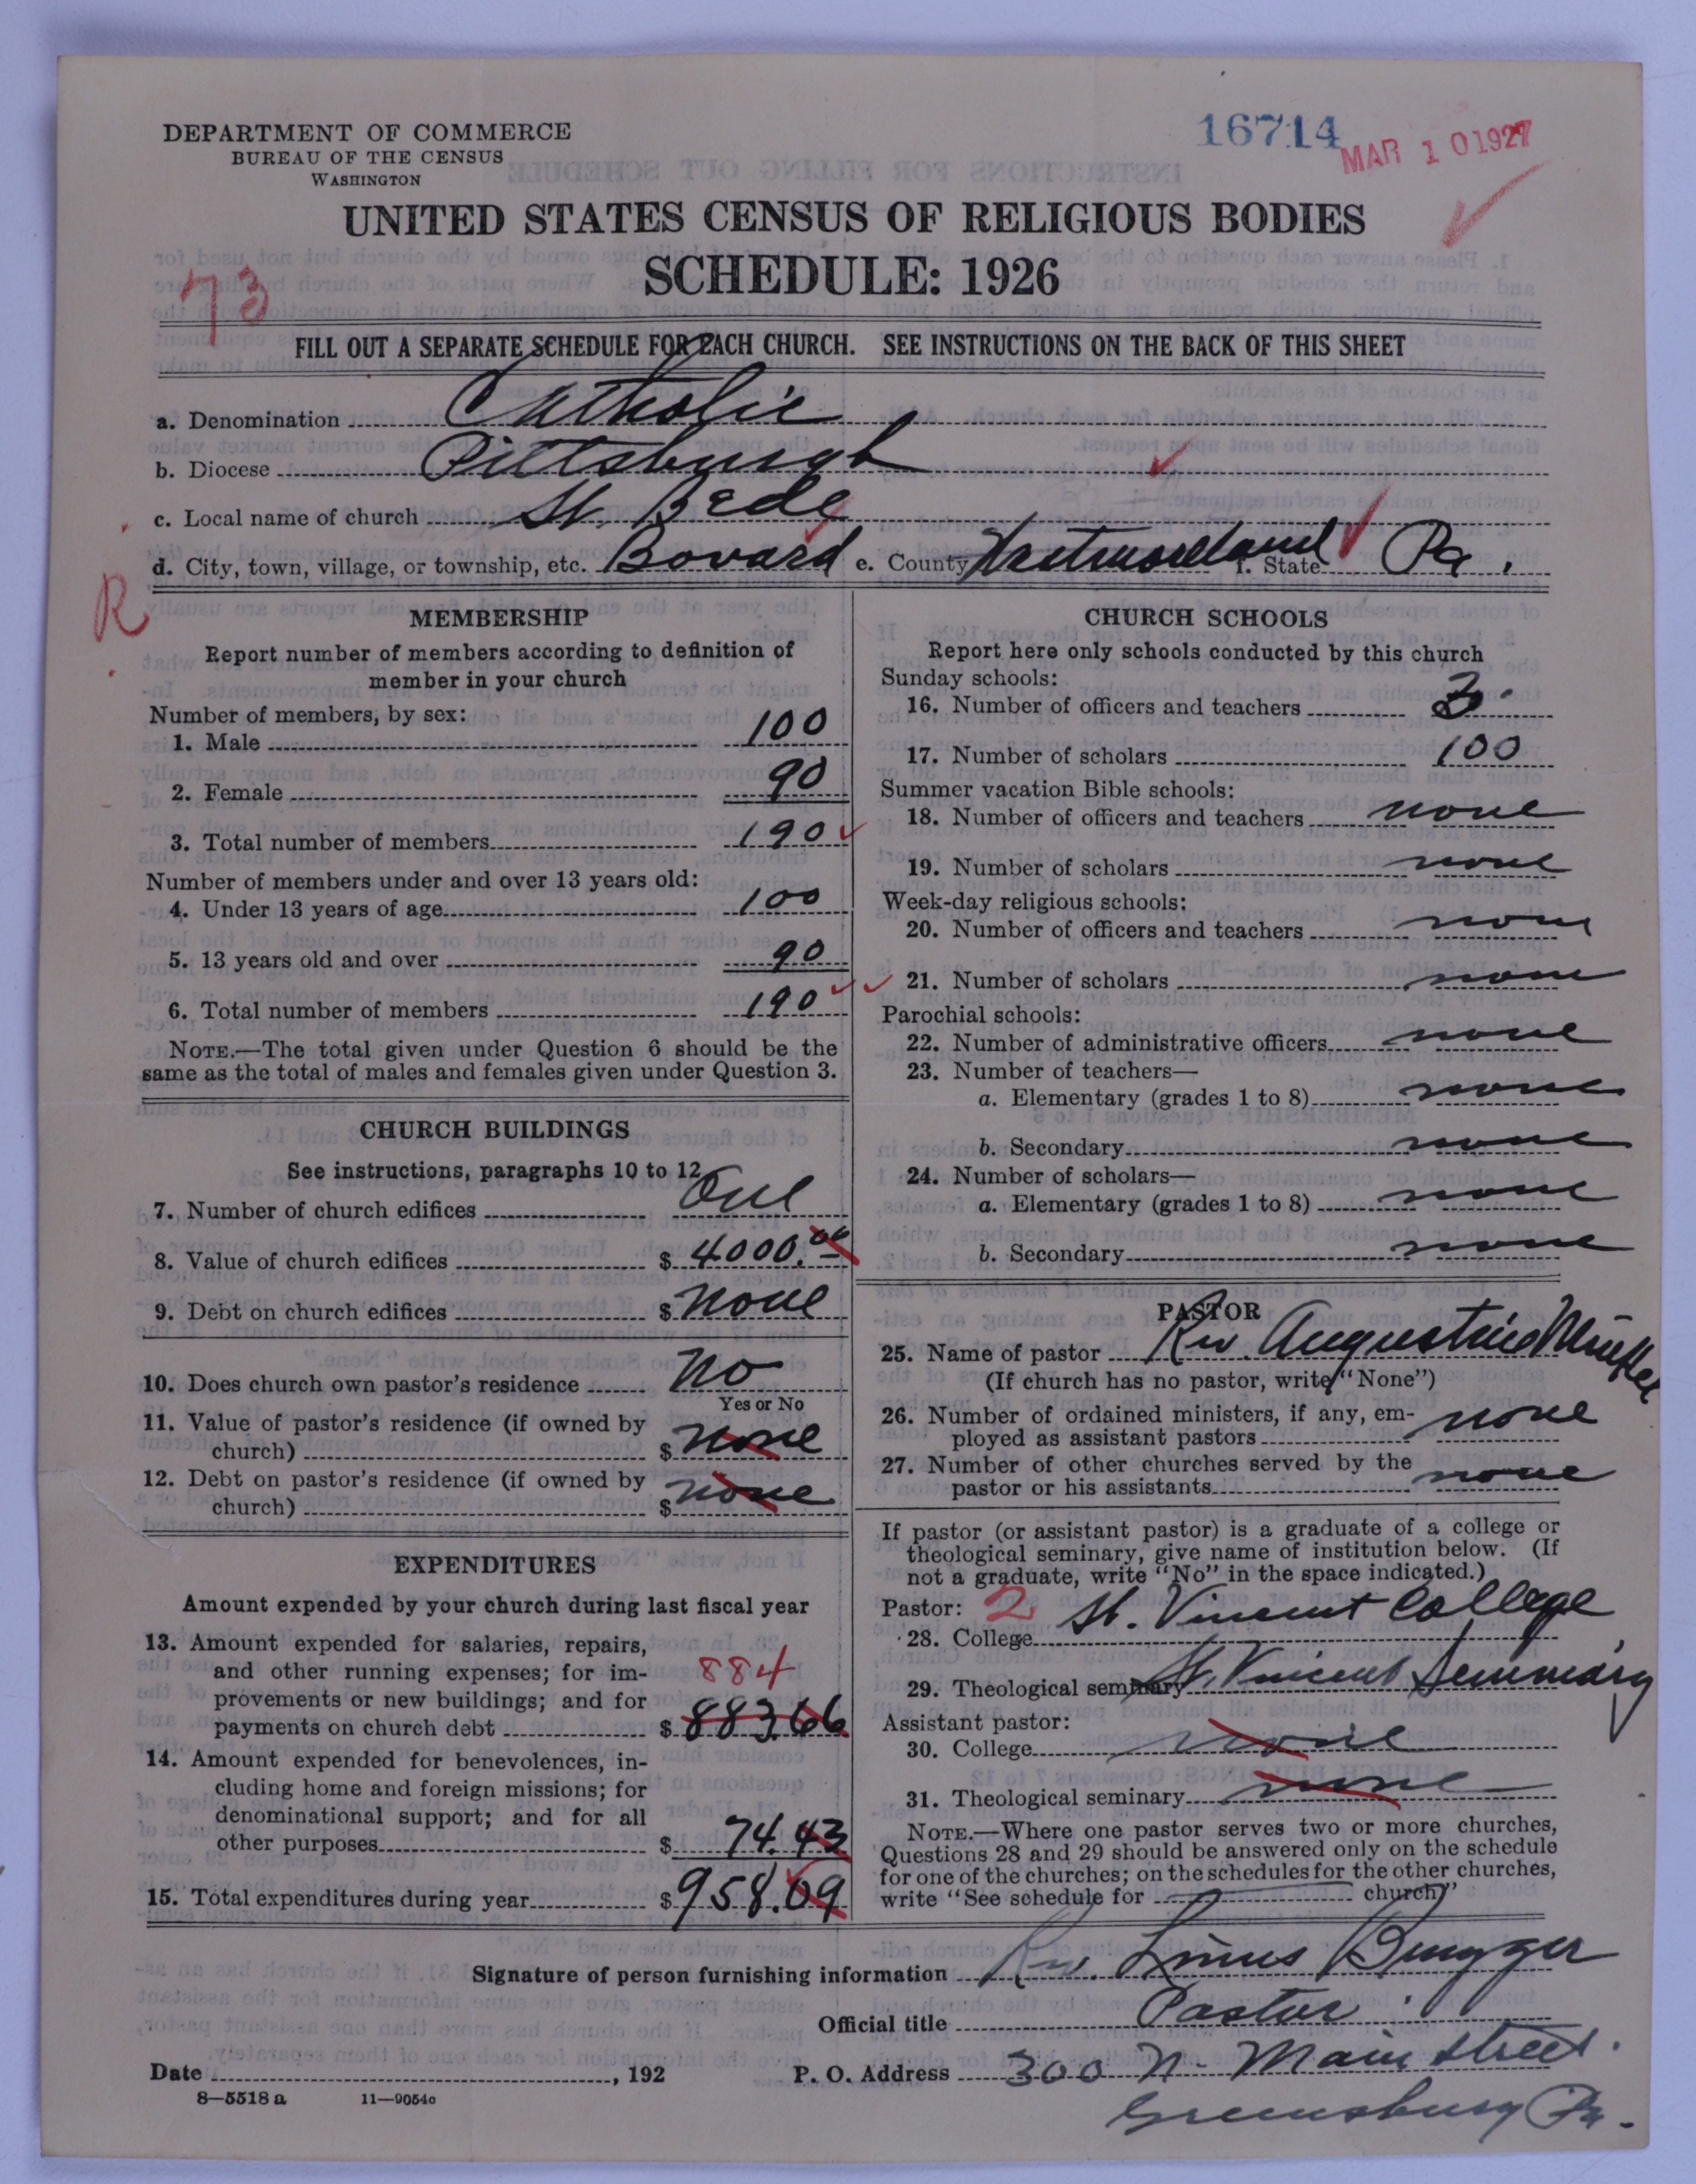 DEPARTMENT OF COMMERCE
BUREAU OF THE CENSUS
WASHINGTON
16714
MAR 10 1927
UNITED STATES CENSUS OF RELIGIOUS BODIES
SCHEDULE: 1926
73
FILL OUT A SEPARATE SCHEDULE FOR EACH CHURCH. SEE INSTRUCTIONS ON THE BACK OF THIS SHEET
a. Denomination Catholic
b. Diocese Pittsburgh
c. Local name of church St. Bede
d. City, town, village, or township, etc. Bovard e. County Westmoreland f. State Pa.
R
MEMBERSHIP
Report number of members according to definition of
member in your church
Number of members, by sex:
1. Male 100
2. Female 90
3. Total number of members 190
Number of members under and over 13 years old:
4. Under 13 years of age 100
5. 13 years old and over 90
6. Total number of members 190
NOTE.—The total given under Question 6 should be the
same as the total of males and females given under Question 3.
CHURCH BUILDINGS
See instructions, paragraphs 10 to 12
7. Number of church edifices One
8. Value of church edifices $ 4000.00
9. Debt on church edifices $ none
10. Does church own pastor's residence No
Yes or No
11. Value of pastor's residence (if owned by
church) $ none
12. Debt on pastor's residence (if owned by
church) $ none
EXPENDITURES
Amount expended by your church during last fiscal year
13. Amount expended for salaries, repairs,
and other running expenses; for im-
884
provements or new buildings; and for
payments on church debt $ 883.66
14. Amount expended for benevolences, in-
cluding home and foreign missions; for
denominational support; and for all
other purposes $ 74.43
15. Total expenditures during year $ 958.09
CHURCH SCHOOLS
Report here only schools conducted by this church
Sunday schools:
16. Number of officers and teachers 3
17. Number of scholars 100
Summer vacation Bible schools:
18. Number of officers and teachers none
19. Number of scholars none
Week-day religious schools:
20. Number of officers and teachers none
21. Number of scholars none
Parochial schools:
22. Number of administrative officers none
23. Number of teachers—
a. Elementary (grades 1 to 8) none
b. Secondary none
24. Number of scholars—
a. Elementary (grades 1 to 8) none
b. Secondary none
PASTOR
25. Name of pastor Rev. Augustine
(If church has no pastor, write "None")
26. Number of ordained ministers, if any, em-
ployed as assistant pastors none
27. Number of other churches served by the
pastor or his assistants none
If pastor (or assistant pastor) is a graduate of a college or
theological seminary, give name of institution below. (If
not a graduate, write "No" in the space indicated.)
Pastor: 2
28. College St. Vincent College
29. Theological seminary St. Vincent Seminary
Assistant pastor:
30. College none
31. Theological seminary none
NOTE.—Where one pastor serves two or more churches,
Questions 28 and 29 should be answered only on the schedule
for one of the churches; on the schedules for the other churches,
write "See schedule for church"
Signature of person furnishing information Rev. Linus Brugger
Official title Pastor
Date , 192 P. O. Address 300 N. Main Street.
8—5518 a 11—9054c
Greensburg Pa.